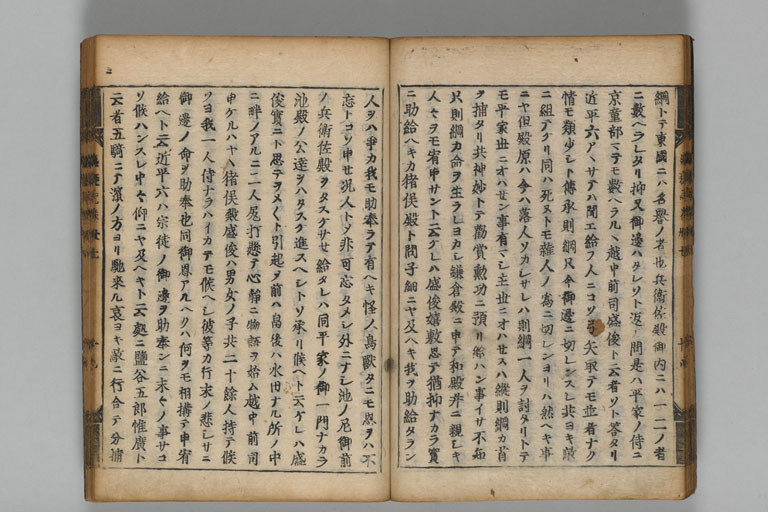 綱トテ東國ニハ名譽ノ者也兵衛佐殿御内ニハ一二ノ者
ニ數ヘラレタリ抑又御邊ハタレソト返シ問是ハ平家ノ侍ニ
京童部マテモ數ヘラルヽ越中前司盛俊ト云者ソト答タリ
近平六アヽサテハ聞エ給フ人ニコソ弓矢取テモ並者ナク
情モ類少シト傳承則綱只今御邊ニ切レンスレ共ヨキ敵
ニ組テケリ同ハ死ヌトモ雑人ノ為ニ切レンヨリハ然ヘキ事
ニヤ但殿原ハ今ハ落人ソカシサレハ則綱一人ヲ討タリトテ
モ平家世ニオハセン事有マシ主世ニオハセスハ縦則綱カ首
ヲ捕タリ共神妙トテ勸賞勲功ニ預リ給ハン事イサ不知
只則綱カ命ヲ生ラレヨカシ鎌倉殿ニ申テ和殿并ニ親シキ
人々ヲモ宥申サント云ケレハ盛俊嬉敷思テ猶抑ナカラ實
ニ助給ヘキカ猪俣殿ト問子細ニヤ及ヘキ我ヲ助給タラン
人ヲハ争カ我モ助奉ラテ有ヘキ怪ノ鳥獣タニモ恩ヲハ不
忘トコソ申セ况人トメ非可忘タメシ外ニナシ池ノ尼御前
ノ兵衛佐殿ヲタスケサセ給タレハ同平家ノ御一門ナカラ
池殿ノ公達ヲハタスケ進スヘシトソ承リ候ヘト云ケレハ盛
俊實ニト思テヲメ〳〵ト引起ヲ前ハ畠後ハ水田ナル所ノ中
ニ畔ノアルニ二人尻打懸テ心靜ニ物語ヲ始ム越中前司
申ケルハヤヽ猪俣殿盛俊ハ男女ノ子共二十餘人持テ候
ソヨ我一人侍ナラハイカテモ候ヘシ彼等カ行末ノ悲シサニ
御邊ノ命ヲ助奉也同御尋アルヘクハ何ヲモ相搆テ申宥
給ヘト云近平六ハ宗徒ノ御邊ヲ助奉ンニ末々ノ事サコ
ソ候ハンスレ中々仰ニヤ及ヘキト云處ニ鹽谷五郎惟廣ト
云者五騎ニテ濱ノ方ヨリ馳来ル哀ヨキ敵ニ行合テ分捕